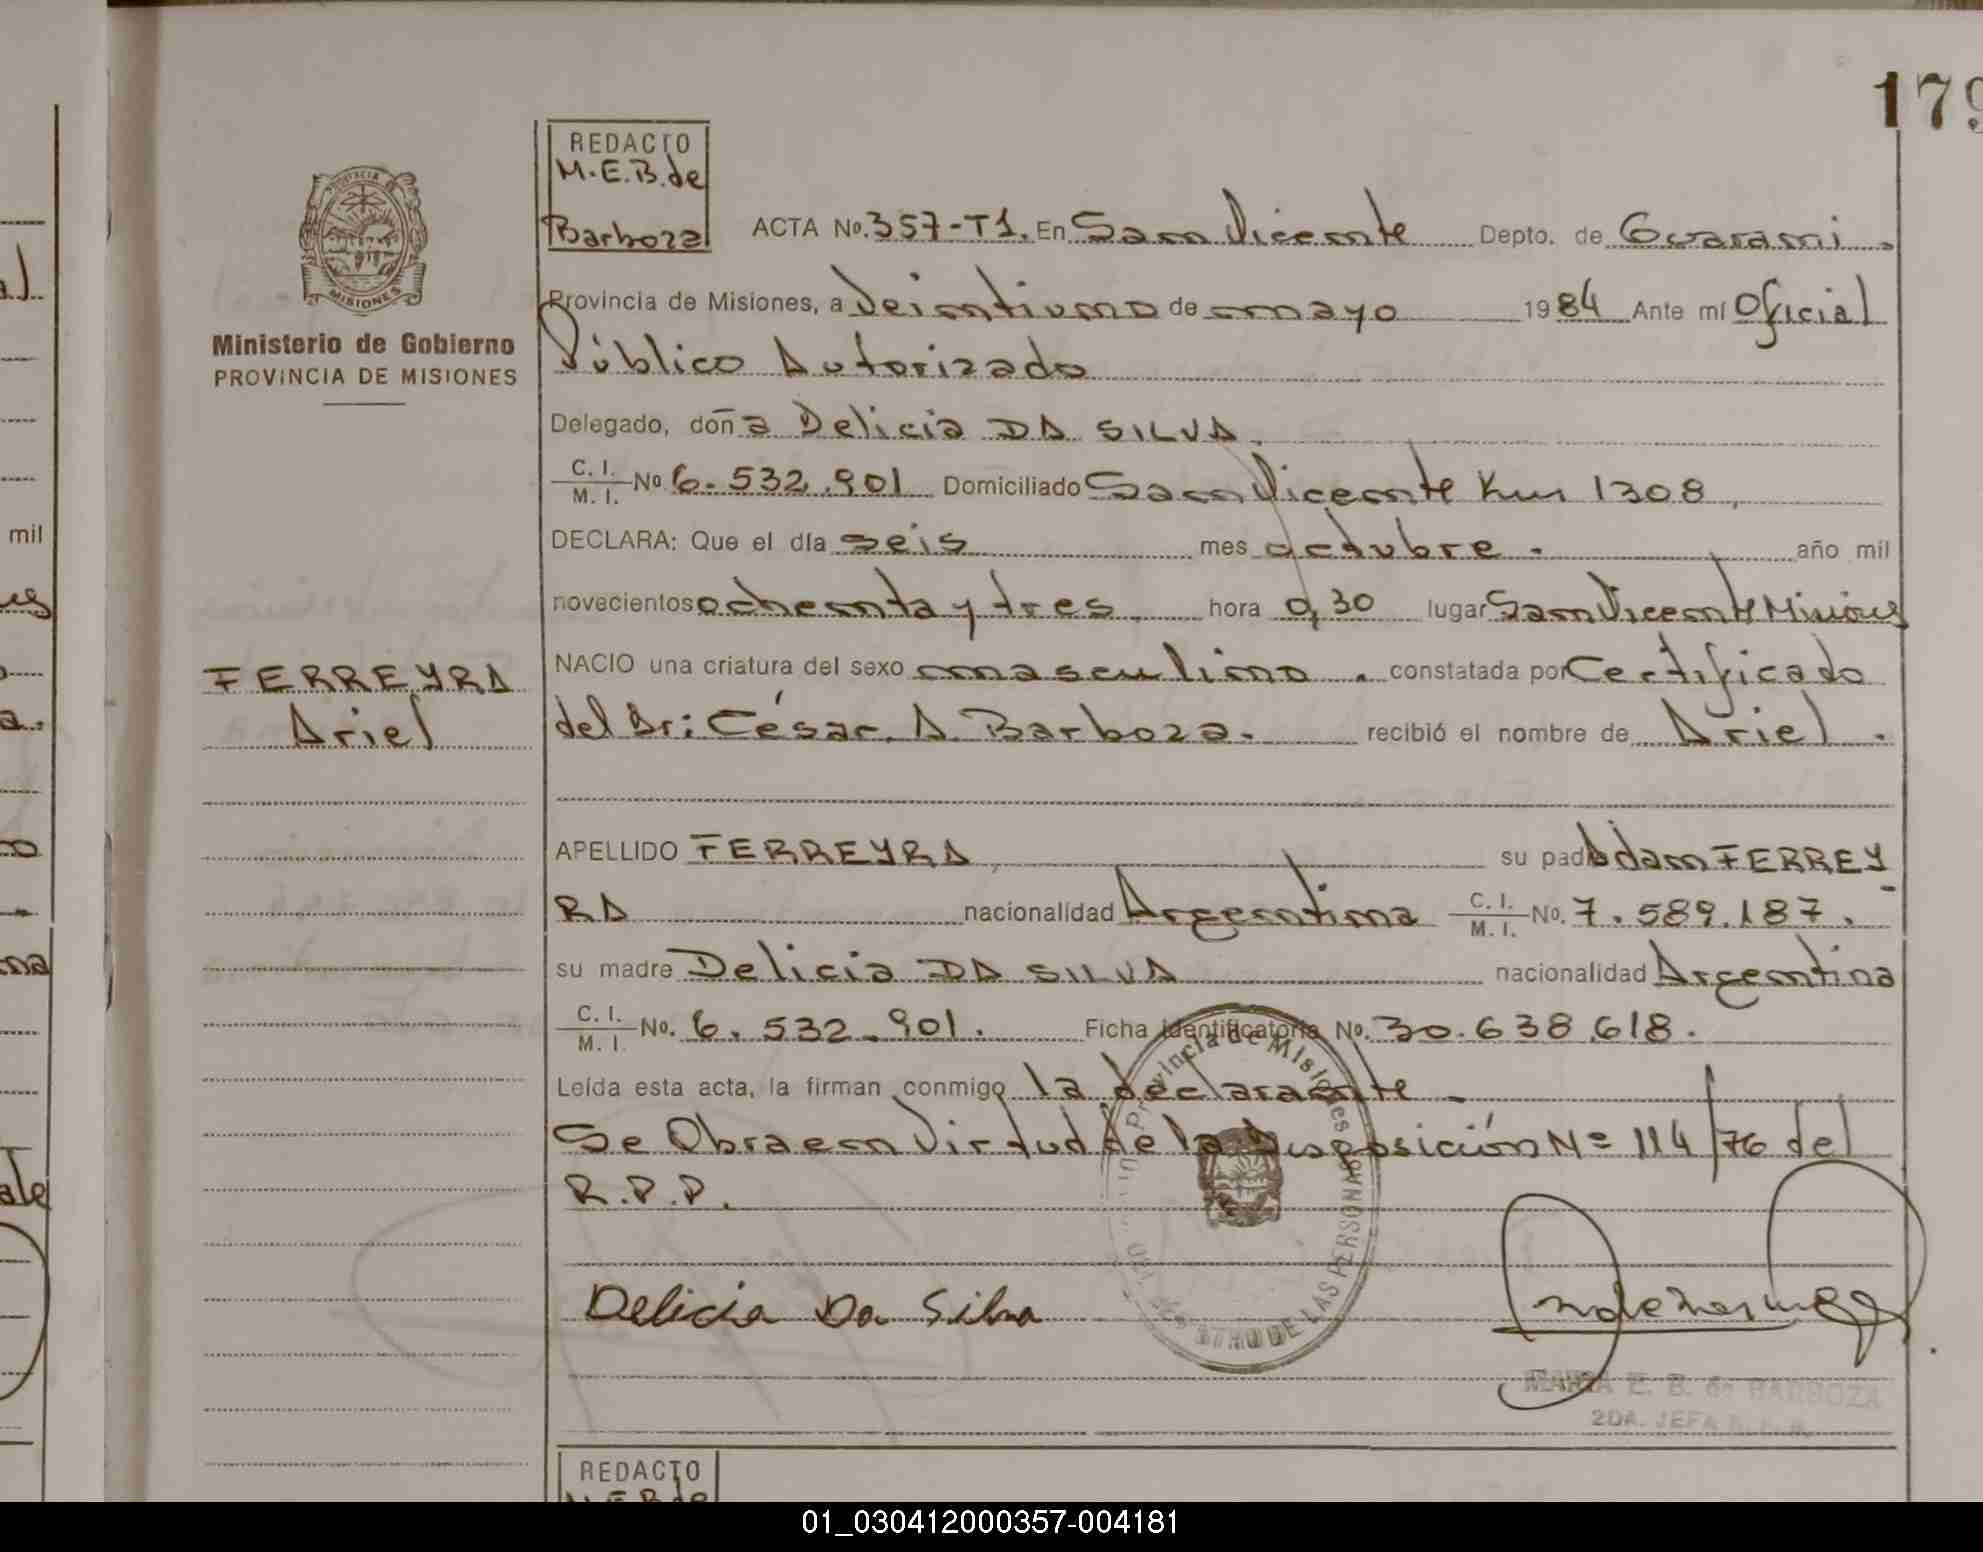 179
REDACTO
M.E.B. de
Barboza
PROVINCIA DE
MISIONES
Ministerio de Gobierno
PROVINCIA DE MISIONES
ACTA No. 357-T1. En San Vicente Depto. de Guarani.
Provincia de Misiones, a Veintiuno de mayo 1984 Ante mí Oficial
Público Autorizado
Delegado, doña Delicia DA SILVA.
C. I. / M. I. No 6.532.901 Domiciliado San Vicente Km 1308,
DECLARA: Que el día seis mes octubre. año mil
novecientos ochenta y tres. hora 0,30 lugar San Vicente Misiones
FERREYRA
Ariel
NACIO una criatura del sexo masculino. constatada por Certificado
del Dr: César. A. Barboza. recibió el nombre de Ariel.
APELLIDO FERREYRA su pad Adam FERREY
RA nacionalidad Argentina C. I. / M. I. No. 7.589.187.
su madre Delicia DA SILVA nacionalidad Argentina
C. I. / M. I. No. 6.532.901. Ficha Identificatoria No. 30.638.618.
Leída esta acta, la firman conmigo la declarante.
Se Obra en Virtud de la Disposición Nº 114/76 del
R.P.P.
Provincia de Misiones
DE LAS PERSONAS
Delicia Da Silva
MARIA E. B. de BARBOZA
2DA. JEFA
REDACTO
M.E.B. de
mil
01_030412000357-004181